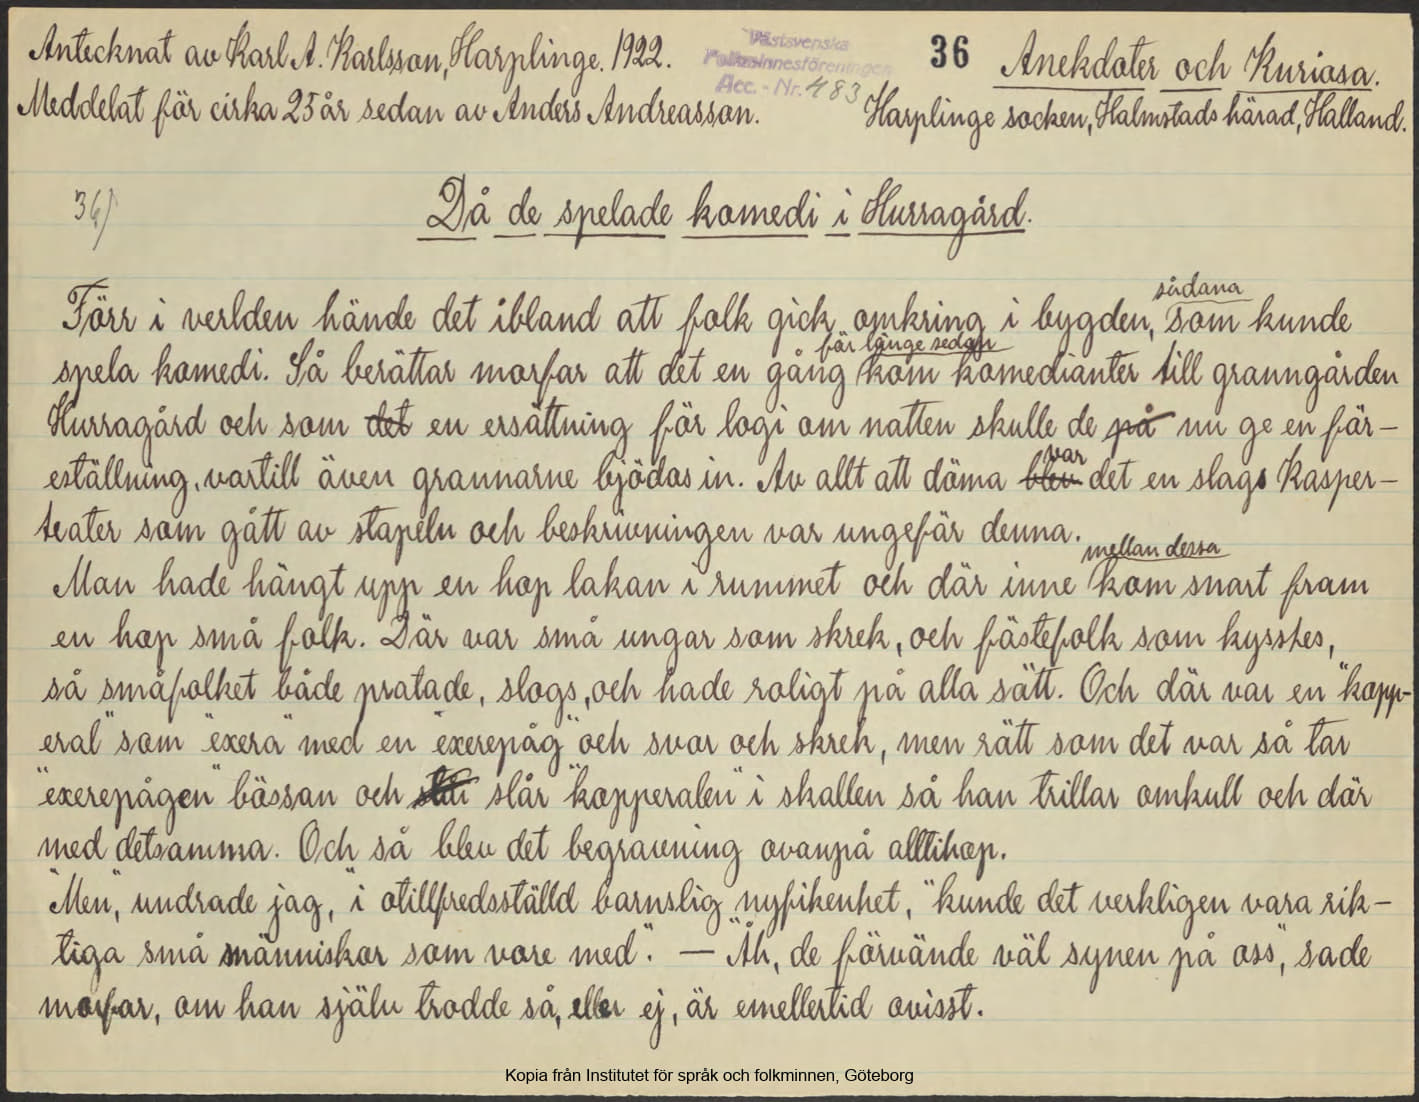 Antecknat av Karl A. Karlsson, Harplinge. 1922.
Meddelat för cirka 25 år sedan av Anders Andreasson.
Västsvenska
Folkminnesföreningen
Acc. - Nr. 483
36
Anekdoter och Kuriosa.
Harplinge socken, Halmstads härad, Halland.
36)
Då de spelade komedi i Hurragård.
sådana
Förr i verlden hände det ibland att folk gick omkring i bygden, som kunde
för länge sedan
spela komedi. Så berättar morfar att det en gång kom komedianter till granngården
Hurragård och som det en ersättning för logi om natten skulle de på nu ge en för-
var
eställning, vartill även grannarne bjödos in. Av allt att döma blev det en slags Kasper-
teater som gått av stapeln och beskrivningen var ungefär denna.
mellan dessa
Man hade hängt upp en hop lakan i rummet och där inne kom snart fram
en hop små folk. Där var små ungar som skrek, och fästefolk som kysstes,
så småfolket både pratade, slogs, och hade roligt på alla sätt. Och där var en "kopp-
eral" som "exera" med en "exerepåg" och svor och skrek, men rätt som det var så tar
"exerepågen" bössan och slår "kopperalen" i skallen så han trillar omkull och dör
med detsamma. Och så blev det begravning ovanpå alltihop.
"Men", undrade jag, "i otillfredsställd barnslig nyfikenhet, "kunde det verkligen vara rik-
tiga små människor som vore med". — "Åh, de förvände väl synen på oss", sade
morfar, om han själv trodde så, eller ej, är emellertid ovisst.
Kopia från Institutet för språk och folkminnen, Göteborg